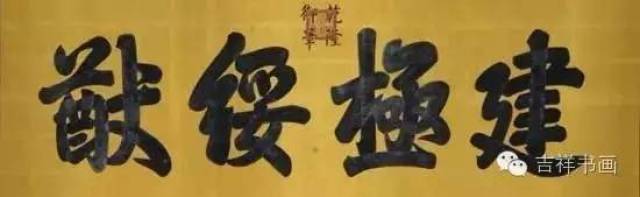 乾隆
御筆
建極綏猷
吉祥书画